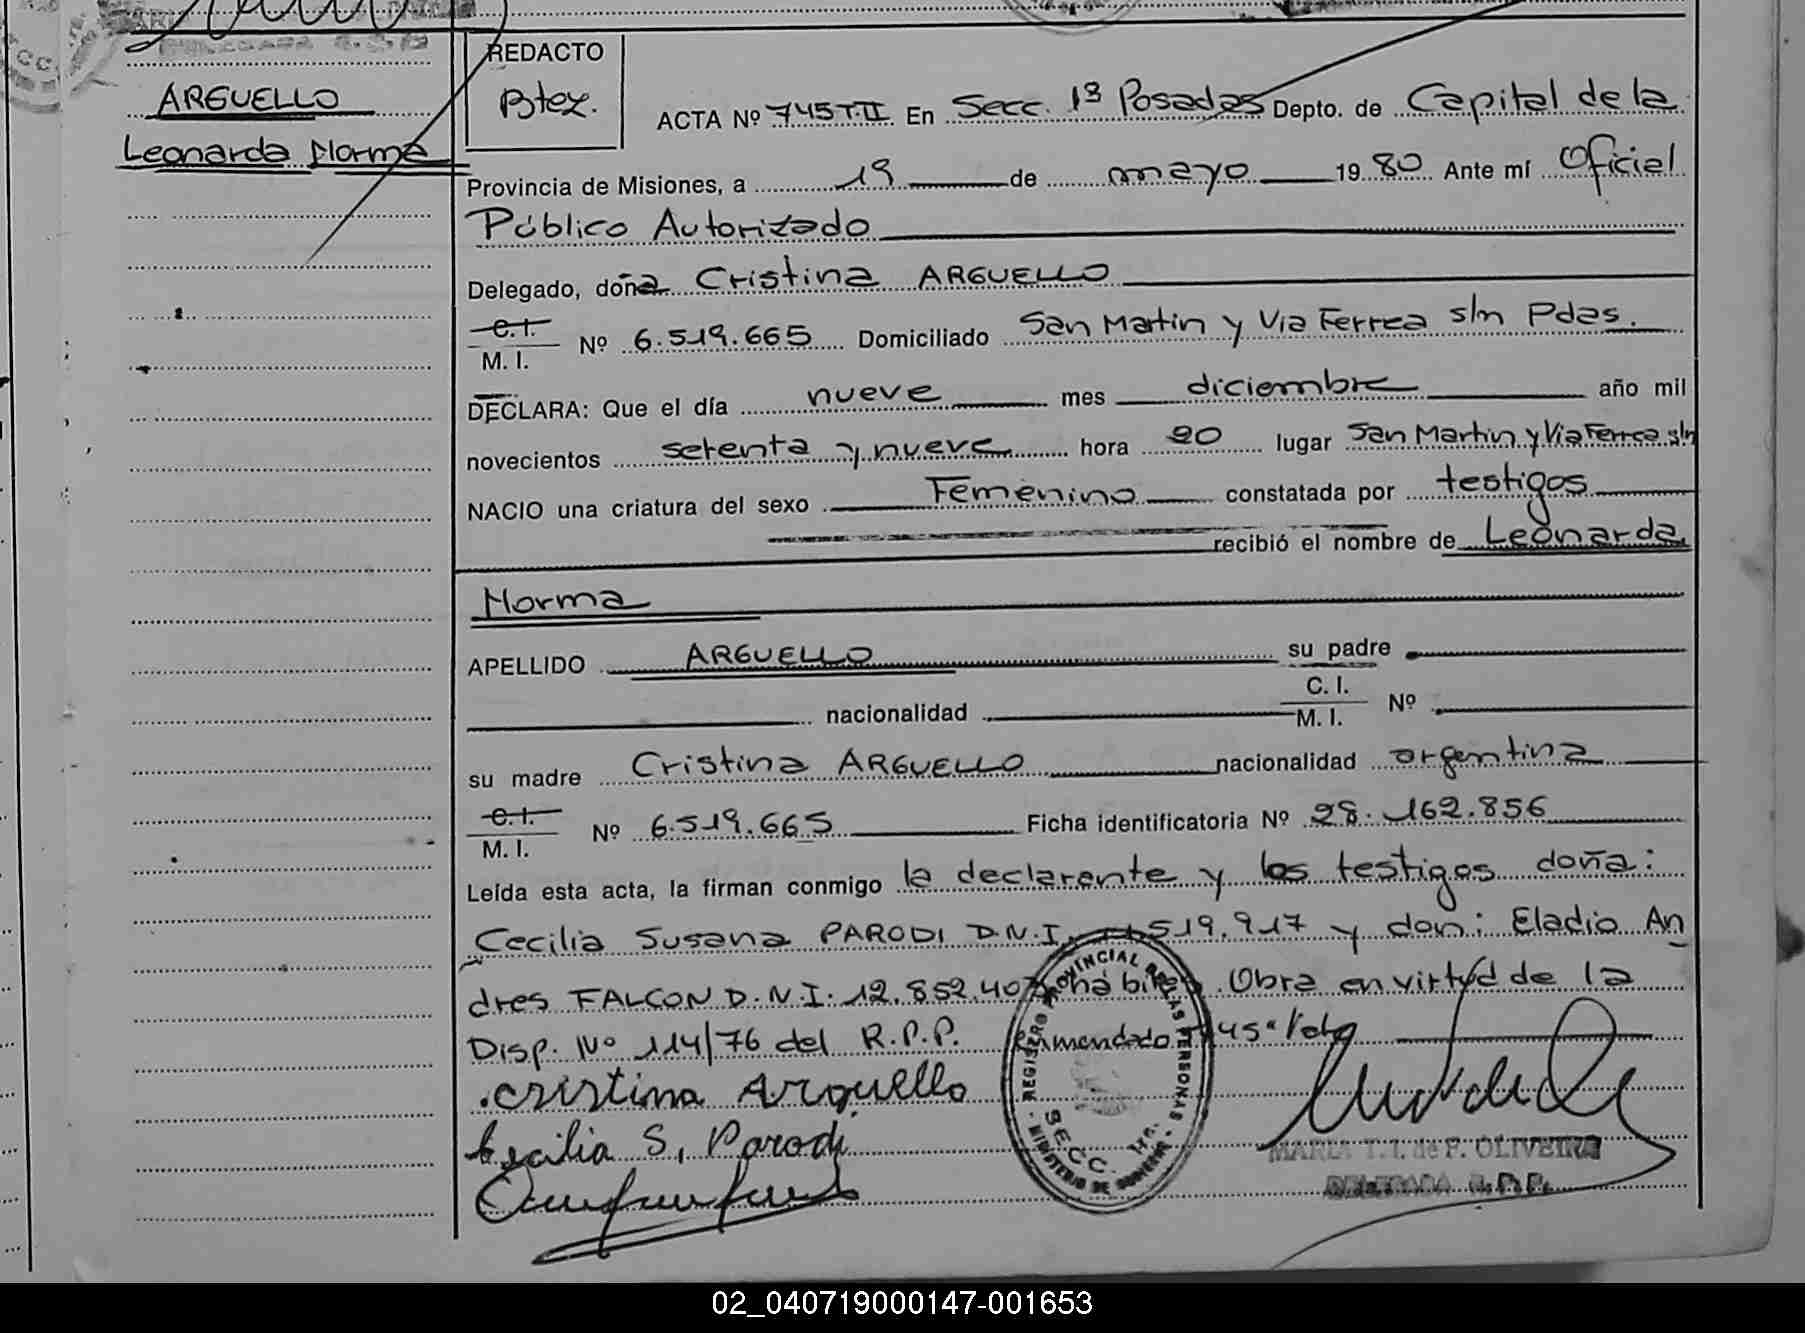 REDACTO
Btez.
ARGUELLO
Leonarda Norma
ACTA Nº 745 T.II En Secc. 1ª Posadas Depto. de Capital de la
Provincia de Misiones, a 19 de mayo 1980 Ante mí Oficial
Público Autorizado
Delegado, doña Cristina ARGUELLO
C.I.
M. I. Nº 6.519.665 Domiciliado San Martin y Via Ferrea s/n Pdas.
DECLARA: Que el día nueve mes diciembre año mil
novecientos setenta y nueve hora 20 lugar San Martin y Via Ferrea s/n
NACIO una criatura del sexo Femenino constatada por testigos
recibió el nombre de Leonarda
Norma
APELLIDO ARGUELLO su padre
nacionalidad C. I.
M. I. Nº
su madre Cristina ARGUELLO nacionalidad argentina
C.I.
M. I. Nº 6.519.665 Ficha identificatoria Nº 28.162.856
Leída esta acta, la firman conmigo la declarante y los testigos doña:
Cecilia Susana PARODI D.N.I. 519.917 y don: Eladio An
dres FALCON D.N.I. 12.852.407 hábiles. Obra en virtud de la
Disp. Nº 114/76 del R.P.P. Enmendado
Cristina Arguello
Cecilia S. Parodi
REGISTRO PROVINCIAL DE LAS PERSONAS
MINISTERIO DE GOBIERNO
SECC. 1ra.
MARIA T. I. de F. OLIVEIRA
DELEGADA R.P.P.
02_040719000147-001653